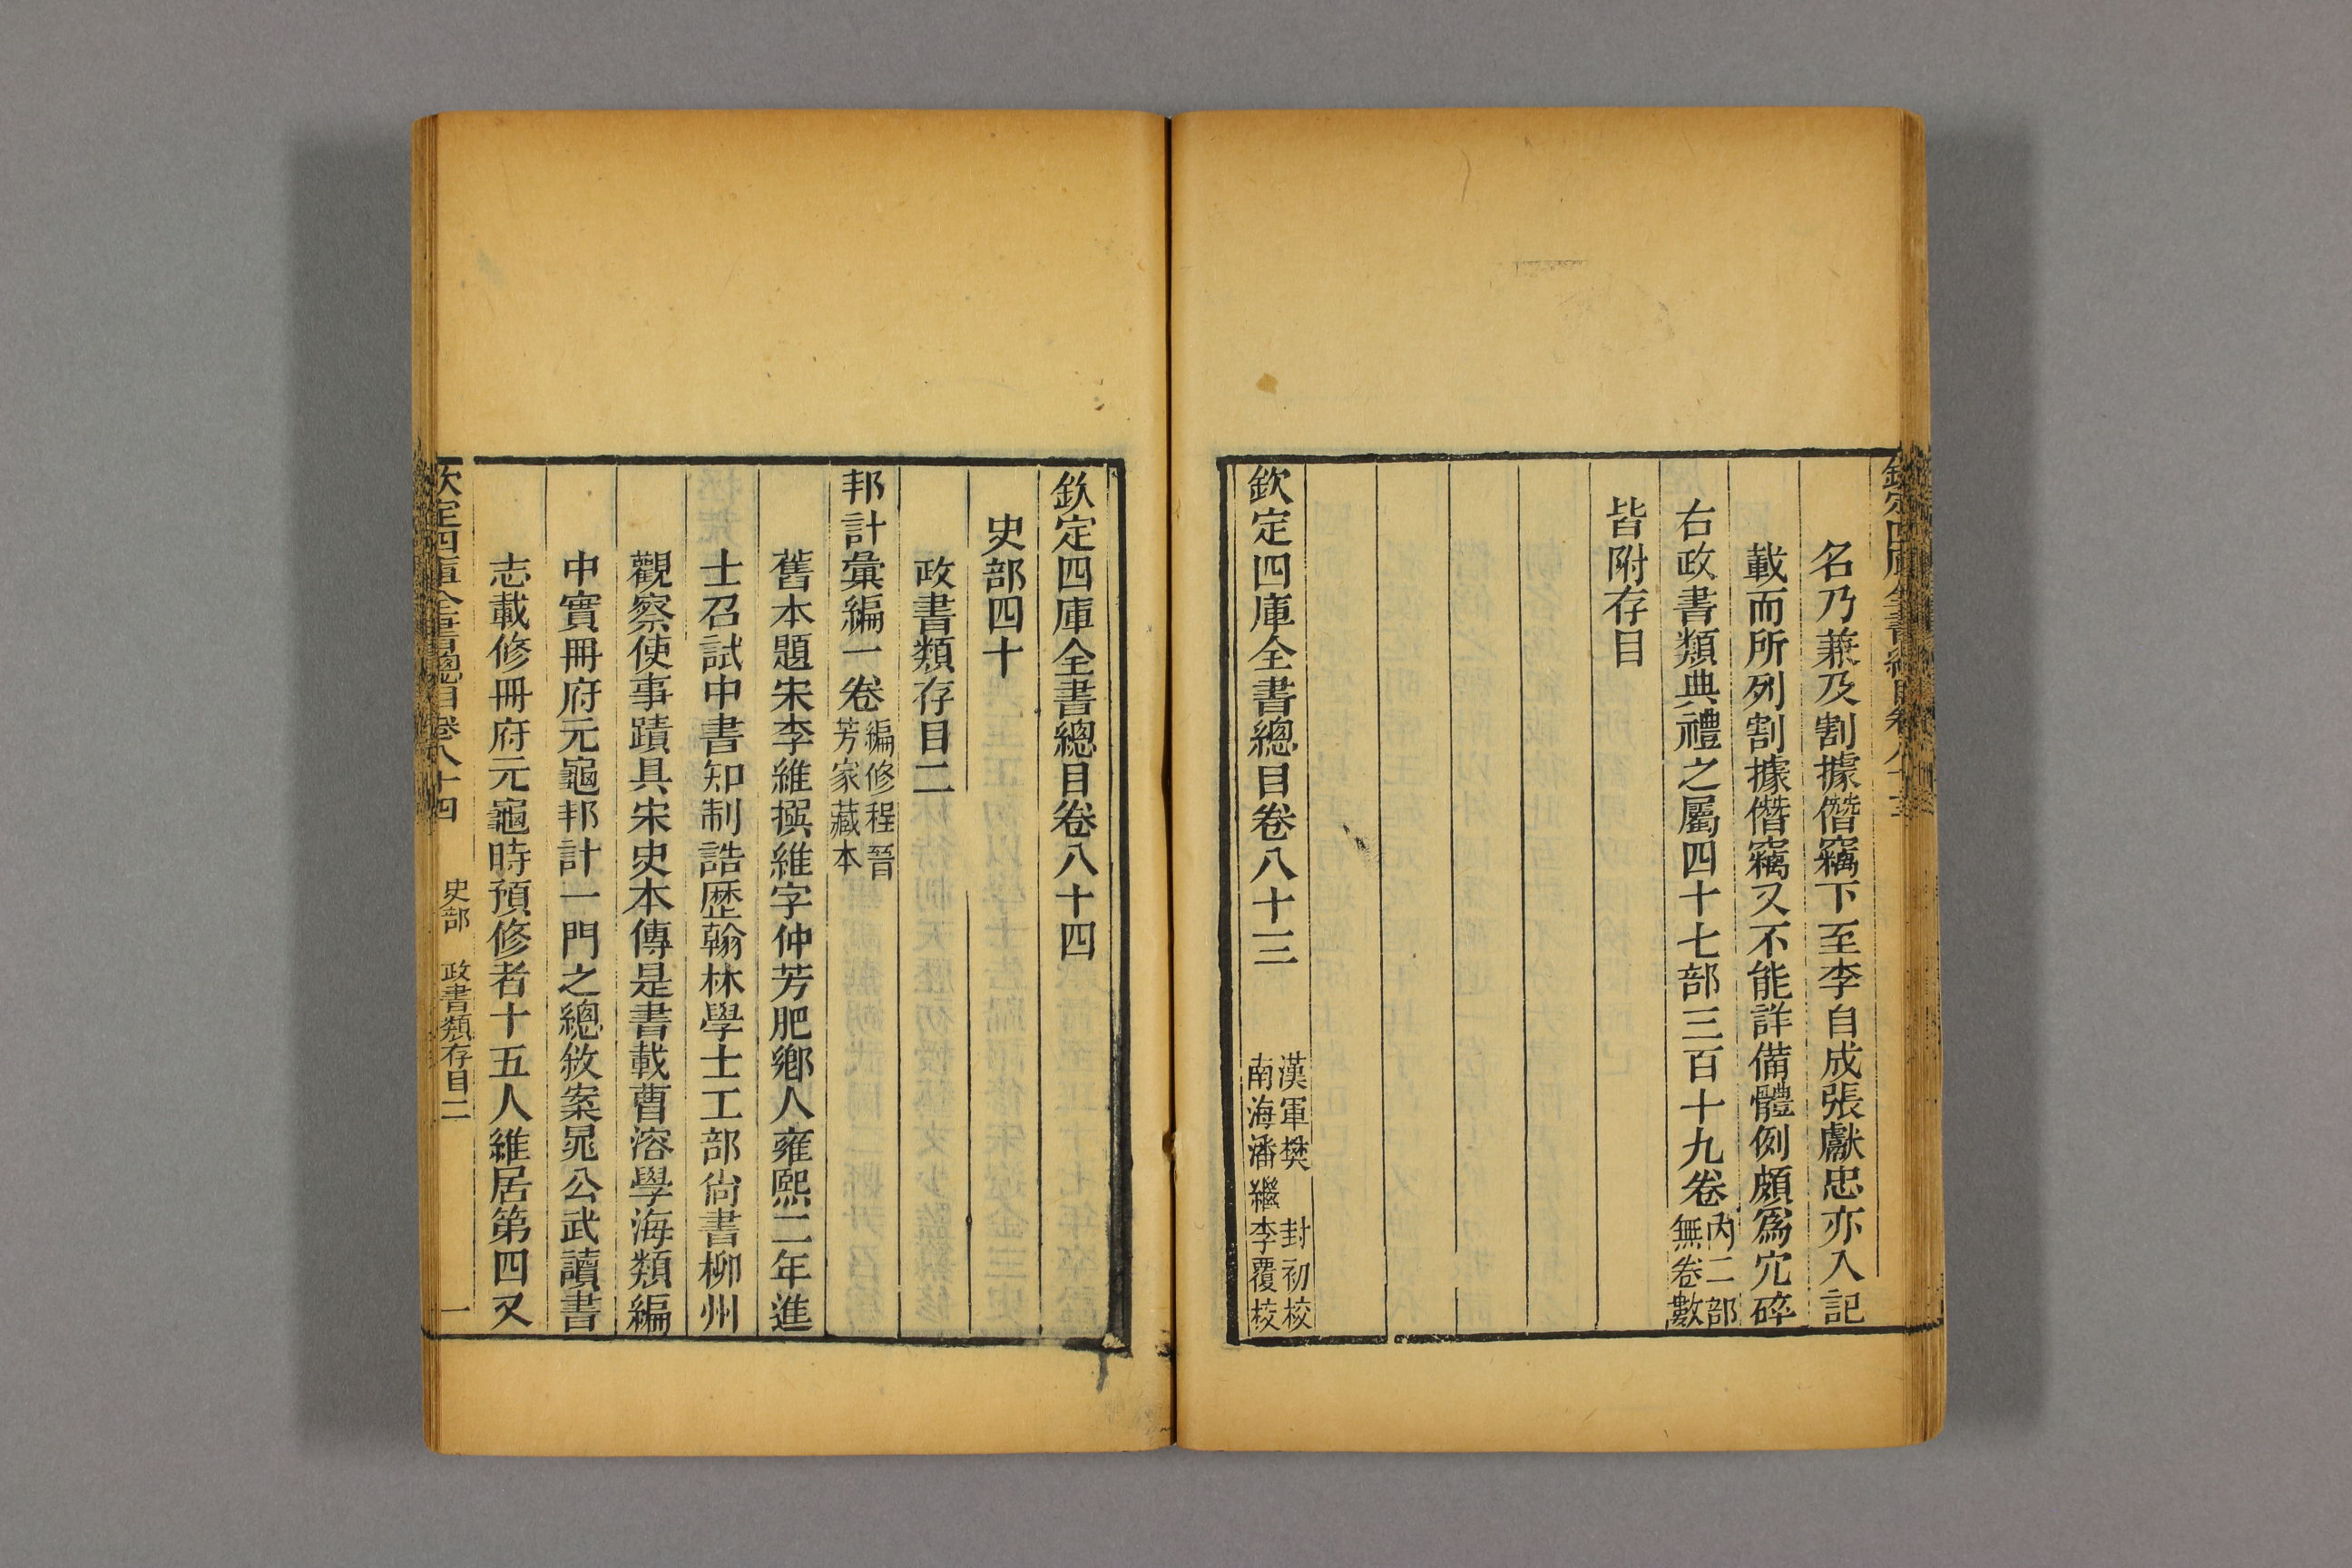 名乃兼及割據僭竊下至李自成張獻忠亦入記
載而所列割據僭竊又不能詳備體例頗爲冗碎
右政書類典禮之屬四十七部三百十九卷內二部無卷數
皆附存目
欽定四庫全書總目卷八十三
漢軍樊封初校
南海潘繼李覆校
欽定四庫全書總目卷八十四
史部四十
政書類存目二
邦計彙編一卷編修程晉芳家藏本
舊本題宋李維撰維字仲芳肥鄉人雍熙二年進
士召試中書知制誥歷翰林學士工部尙書柳州
觀察使事蹟具宋史本傳是書載曹溶學海類編
中實冊府元龜邦計一門之總敘案晁公武讀書
志載修冊府元龜時預修者十五人維居第四又
欽定四庫全書總目卷八十四 史部 政書類存目二 一